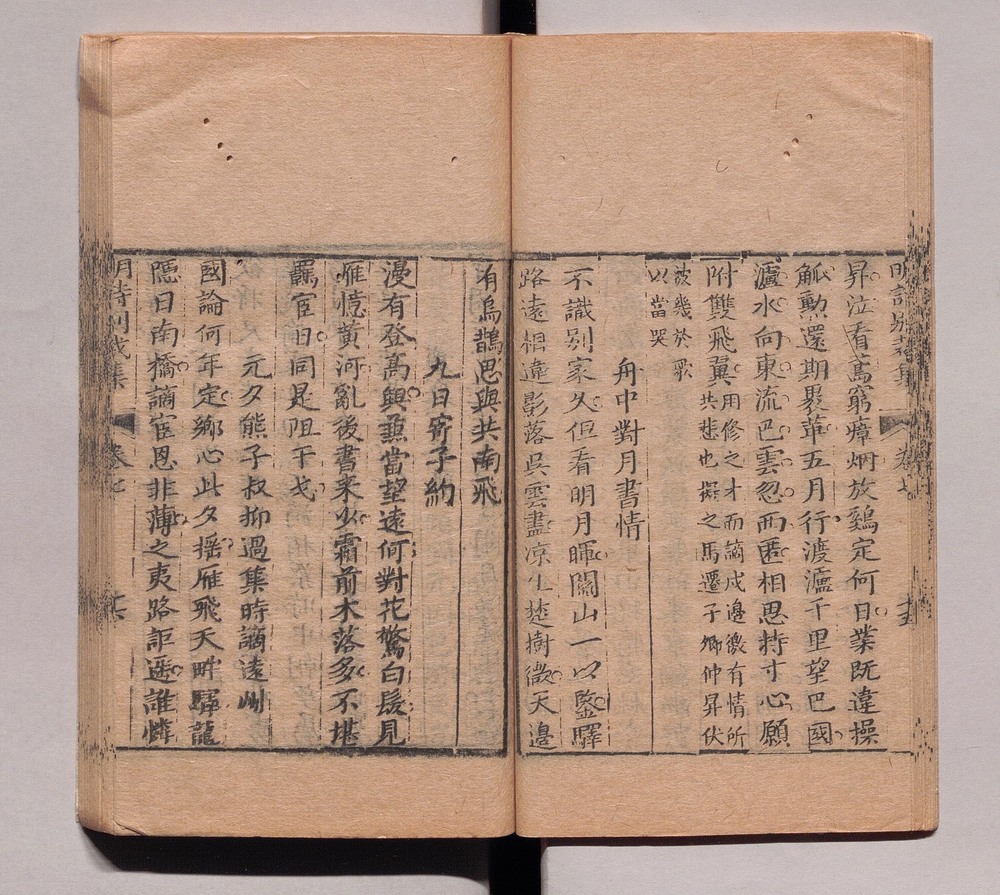 昇泣看鳶窮瘴烟放鷄定何日業既違操
觚勳還期裹革五月行渡瀘千里望巴國
瀘水向東流巴雲忽而匿相思持寸心願
附雙飛翼
用修之才而謫戍邊徼有情所
共悲也擬之馬遷子卿仲昇伏
波幾於歌
以當哭
舟中對月書情
不識别家久但看明月暉關山一以鑒驛
路遠相違影落吳雲盡凉生楚樹微天邊
有烏鵲思與共南飛
九日寄子約
漫有登高興兼當望遠何對花驚白髮見
雁憶黄河亂後書来少霜前木落多不堪
羈宦日同是阻干戈
元夕熊子叔抑過集時謫遠州
國論何年定鄉心此夕揺雁飛天畔驛龍
隱日南橋謫宦恩非薄之夷路詎遥誰憐
明詩别裁集 卷七